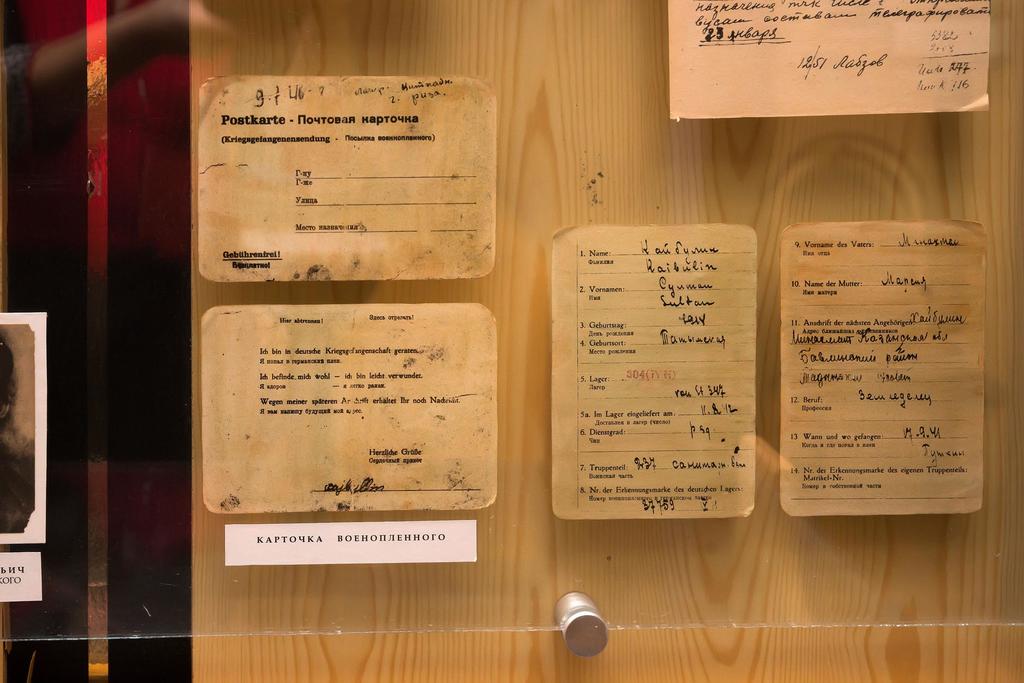 назначения
составам телеграфировать
23 января
12/51 Лабзов
Postkarte - Почтовая карточка
(Kriegsgefangenensendung - Посылка военнопленного)
Г-ну
Г-же
Улица
Место назначения
Gebührenfrei!
Бесплатно!
Hier abtrennen! Здесь отрезать!
Ich bin in deutsche Kriegsgefangenschaft geraten.
Я попал в германский плен.
Ich befinde mich wohl — ich bin leicht verwundet.
Я здоров — я легко ранен.
Wegen meiner späteren Anschrift erhaltet Ihr noch Nachricht.
Я вам напишу будущий мой адрес.
Herzliche Grüße:
Сердечный привет
КАРТОЧКА ВОЕНОПЛЕННОГО
1. Name: Хайбулин
Фамилия Kaibulin
2. Vornamen: Султан
Имя Sultan
3. Geburtstag:
День рождения
4. Geburtsort:
Место рождения
5. Lager: 304(IV H)
Лагер
von St 347
5a. Im Lager eingeliefert am:
Доставлен в лагер (число)
6. Dienstgrad:
Чин
7. Truppenteil: 237 санитар. бат
Воинская часть
8. Nr. der Erkennungsmarke des deutschen Lagers:
Номер военнопленного в германском лагере
37759
9. Vorname des Vaters:
Имя отца
10. Name der Mutter:
Имя матери
11. Anschrift der nächsten Angehörigen: Хайбулин
Адрес ближайших родственников
Казанская обл
район
12. Beruf: Земледелец
Профессия
13 Wann und wo gefangen: 17.9.41
Когда и где попал в плен Пушкин
14. Nr. der Erkennungsmarke des eigenen Truppenteils:
Matrikel-Nr.
Номер в собственной части
ЬИЧ
КОГО